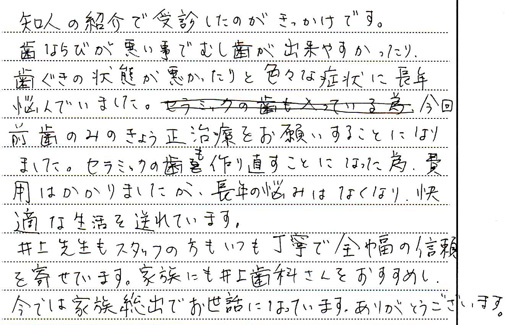 知人の紹介で受診したのがきっかけです。
歯ならびが悪い事でむし歯が出来やすかったり、
歯ぐきの状態が悪かったりと色々な症状に長年
悩んでいました。セラミックの歯も入っている為、今回
前歯のみのきょう正治療をお願いすることになり
ました。セラミックの歯も作り直すことになった為、費
用はかかりましたが、長年の悩みはなくなり、快
適な生活を送れています。
井上先生もスタッフの方もいつも丁寧で全幅の信頼
を寄せています。家族にも井上歯科さんをおすすめし、
今では家族総出でお世話になっています。ありがとうございます。